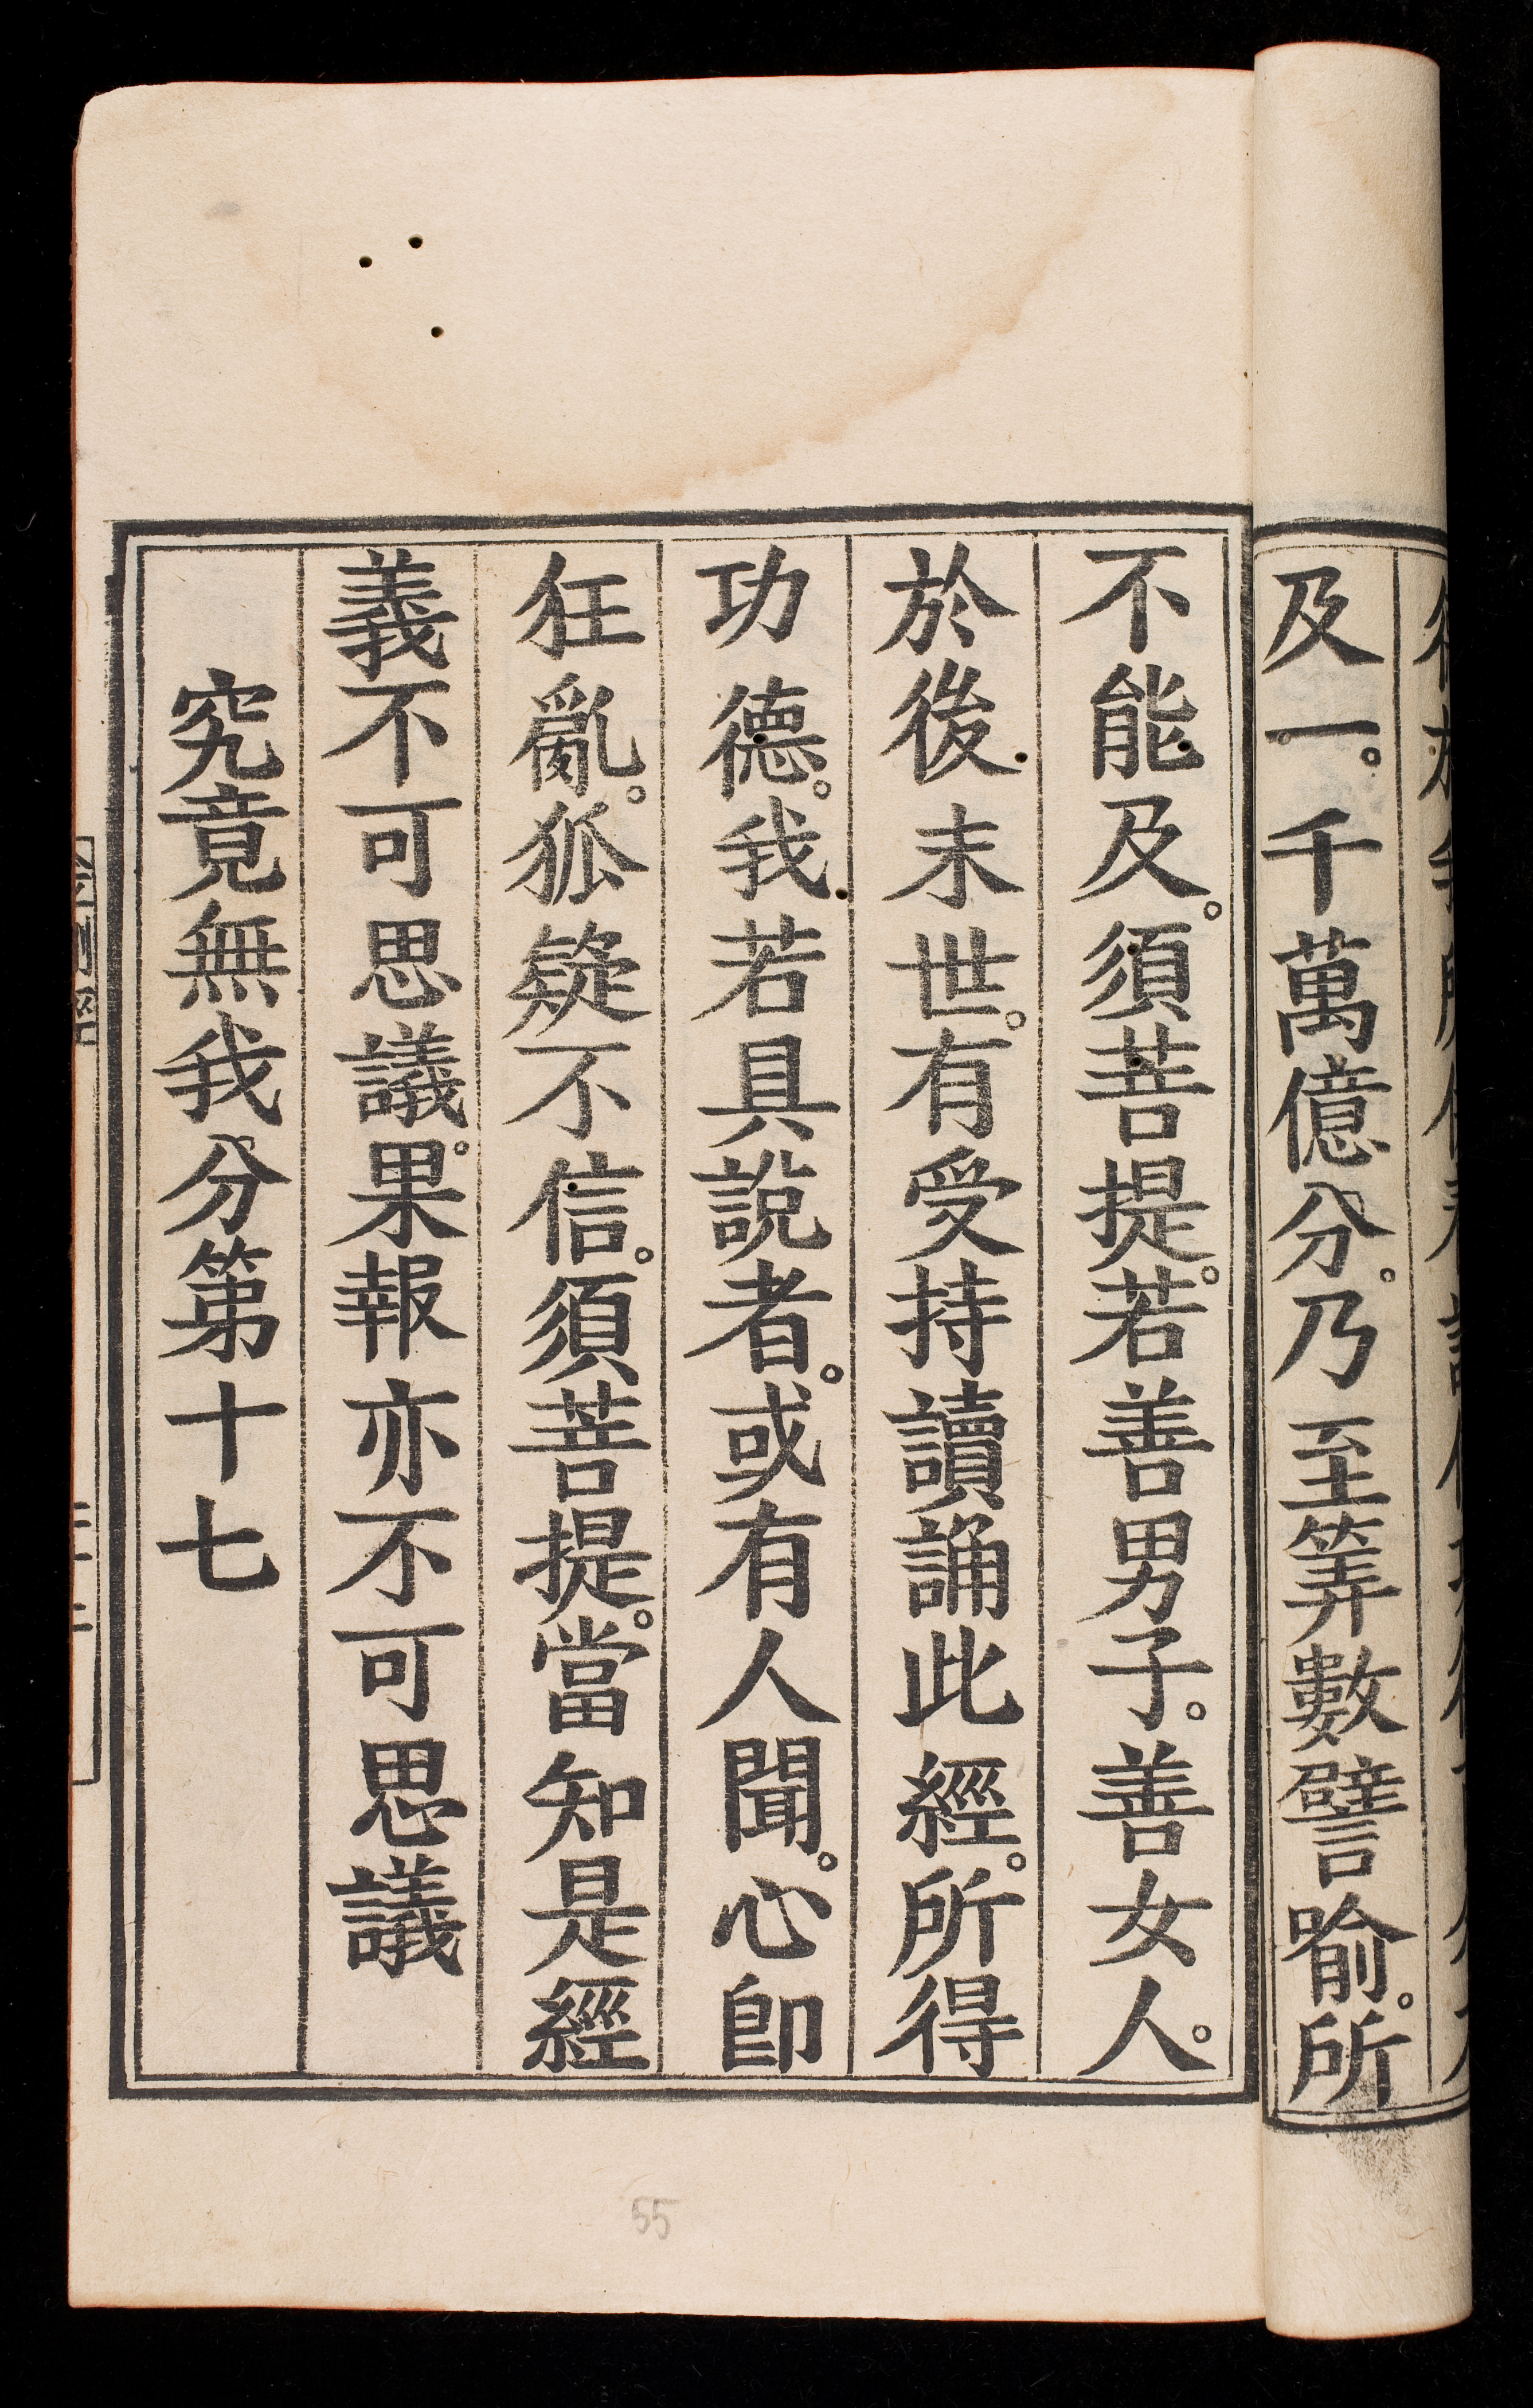 及一。千萬億分。乃至筭數譬喻。所
不能及。須菩提。若善男子。善女人。
於後末世。有受持讀誦此經。所得
功德。我若具說者。或有人聞。心即
狂亂。狐疑不信。須菩提。當知是經
義不可思議。果報亦不可思議
究竟無我分第十七
55